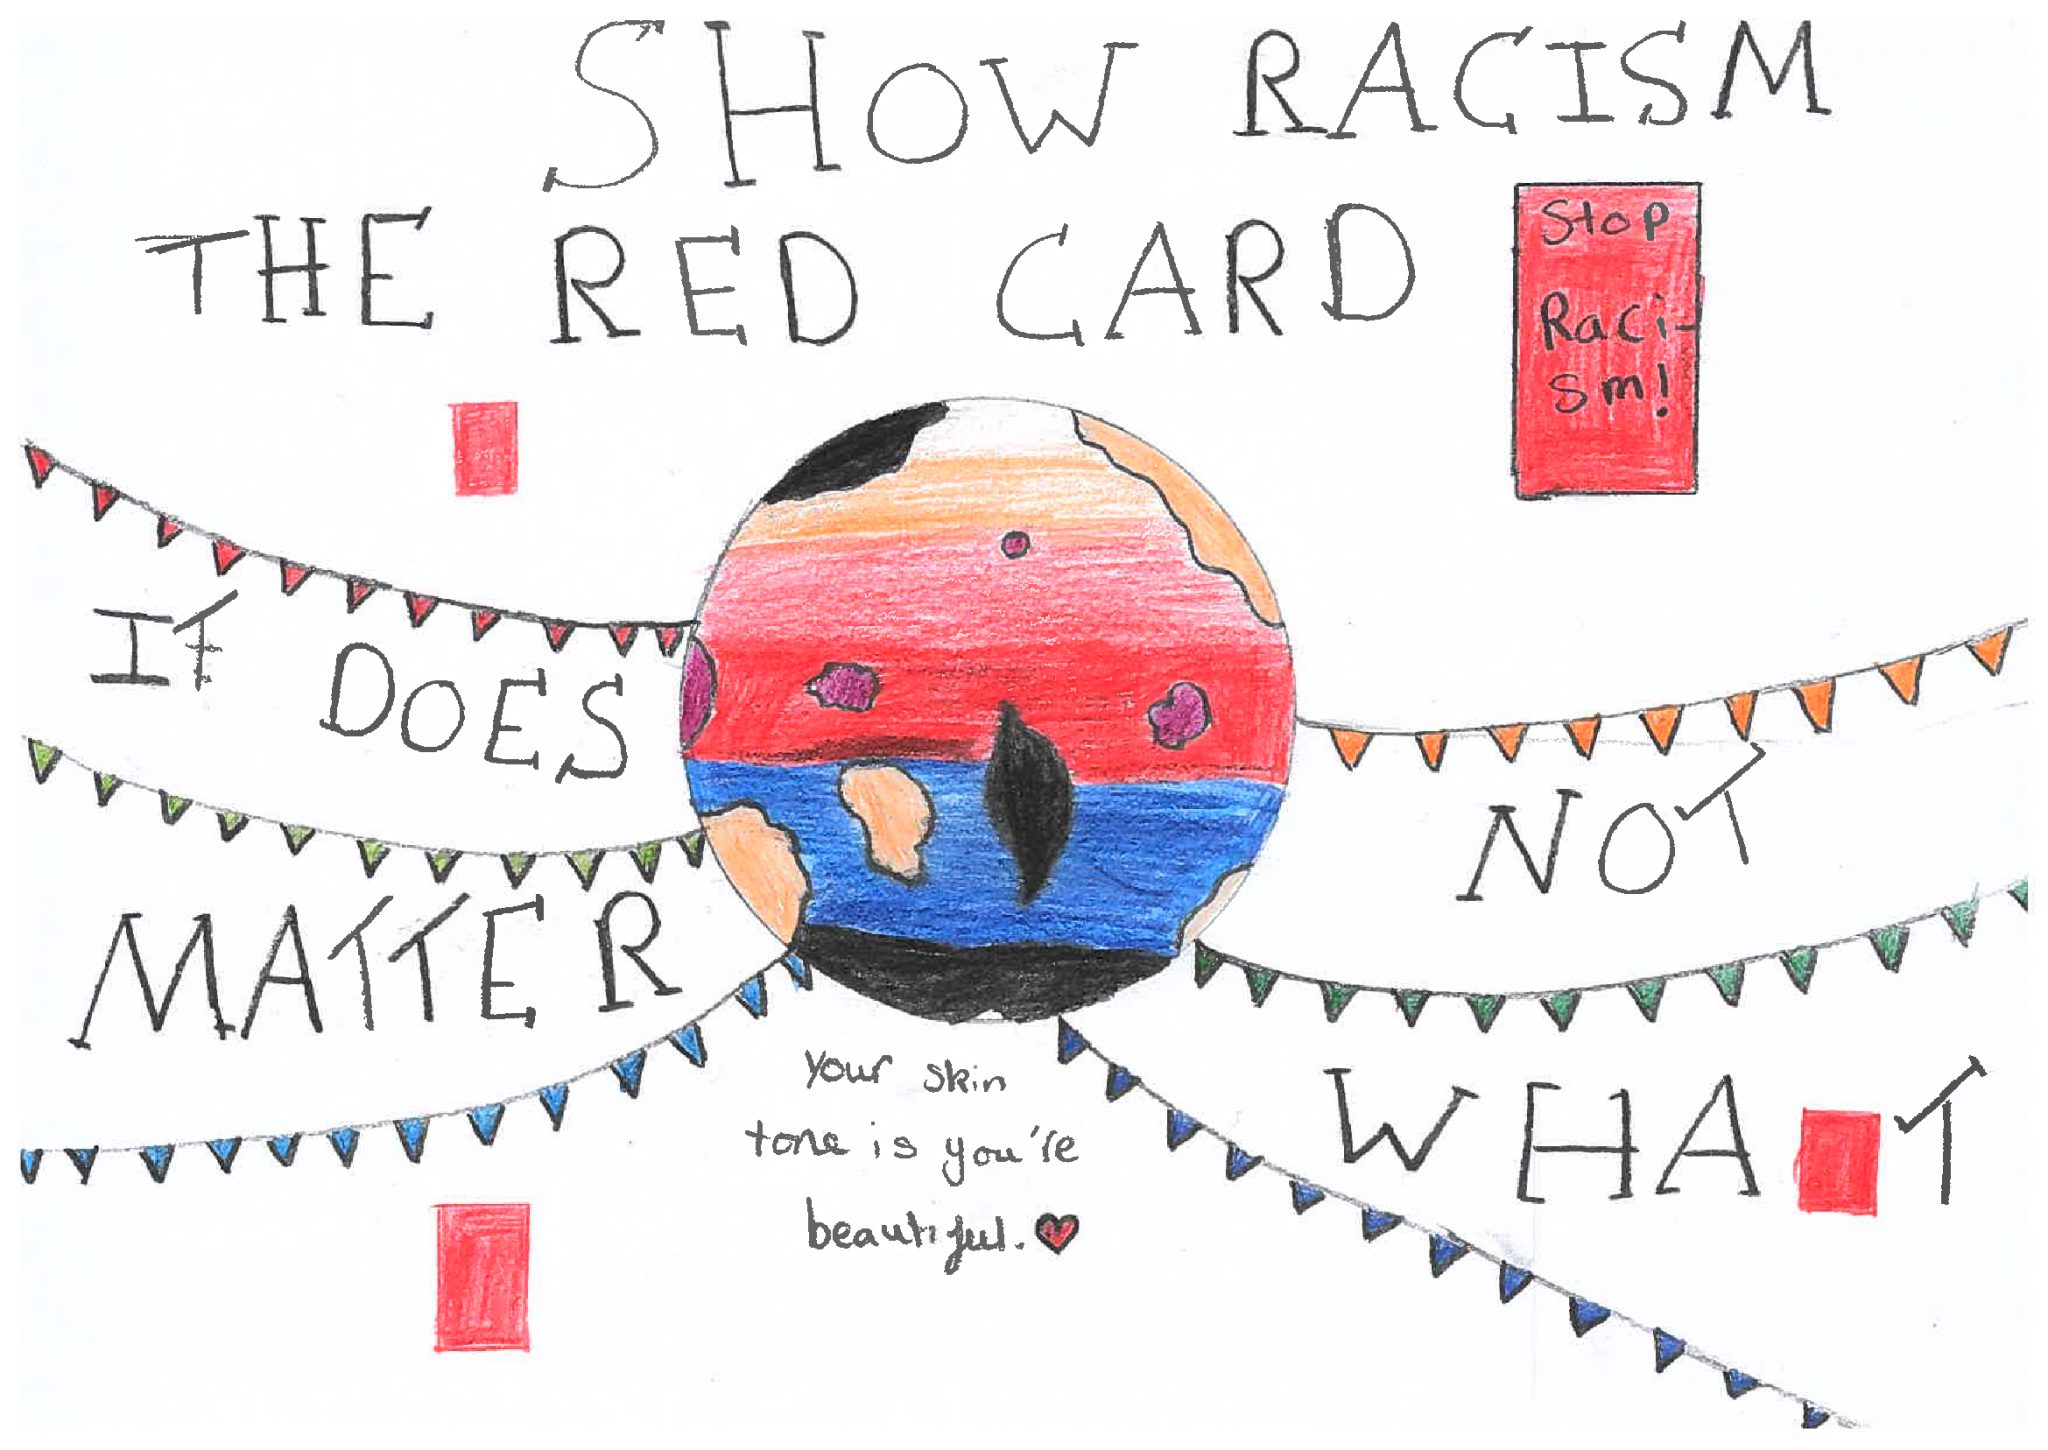 SHOW RACISM
THE RED CARD
Stop
Raci-
sm!
IT DOES
NOT
MATTER
WHAT
Your skin
tone is you're
beautiful.